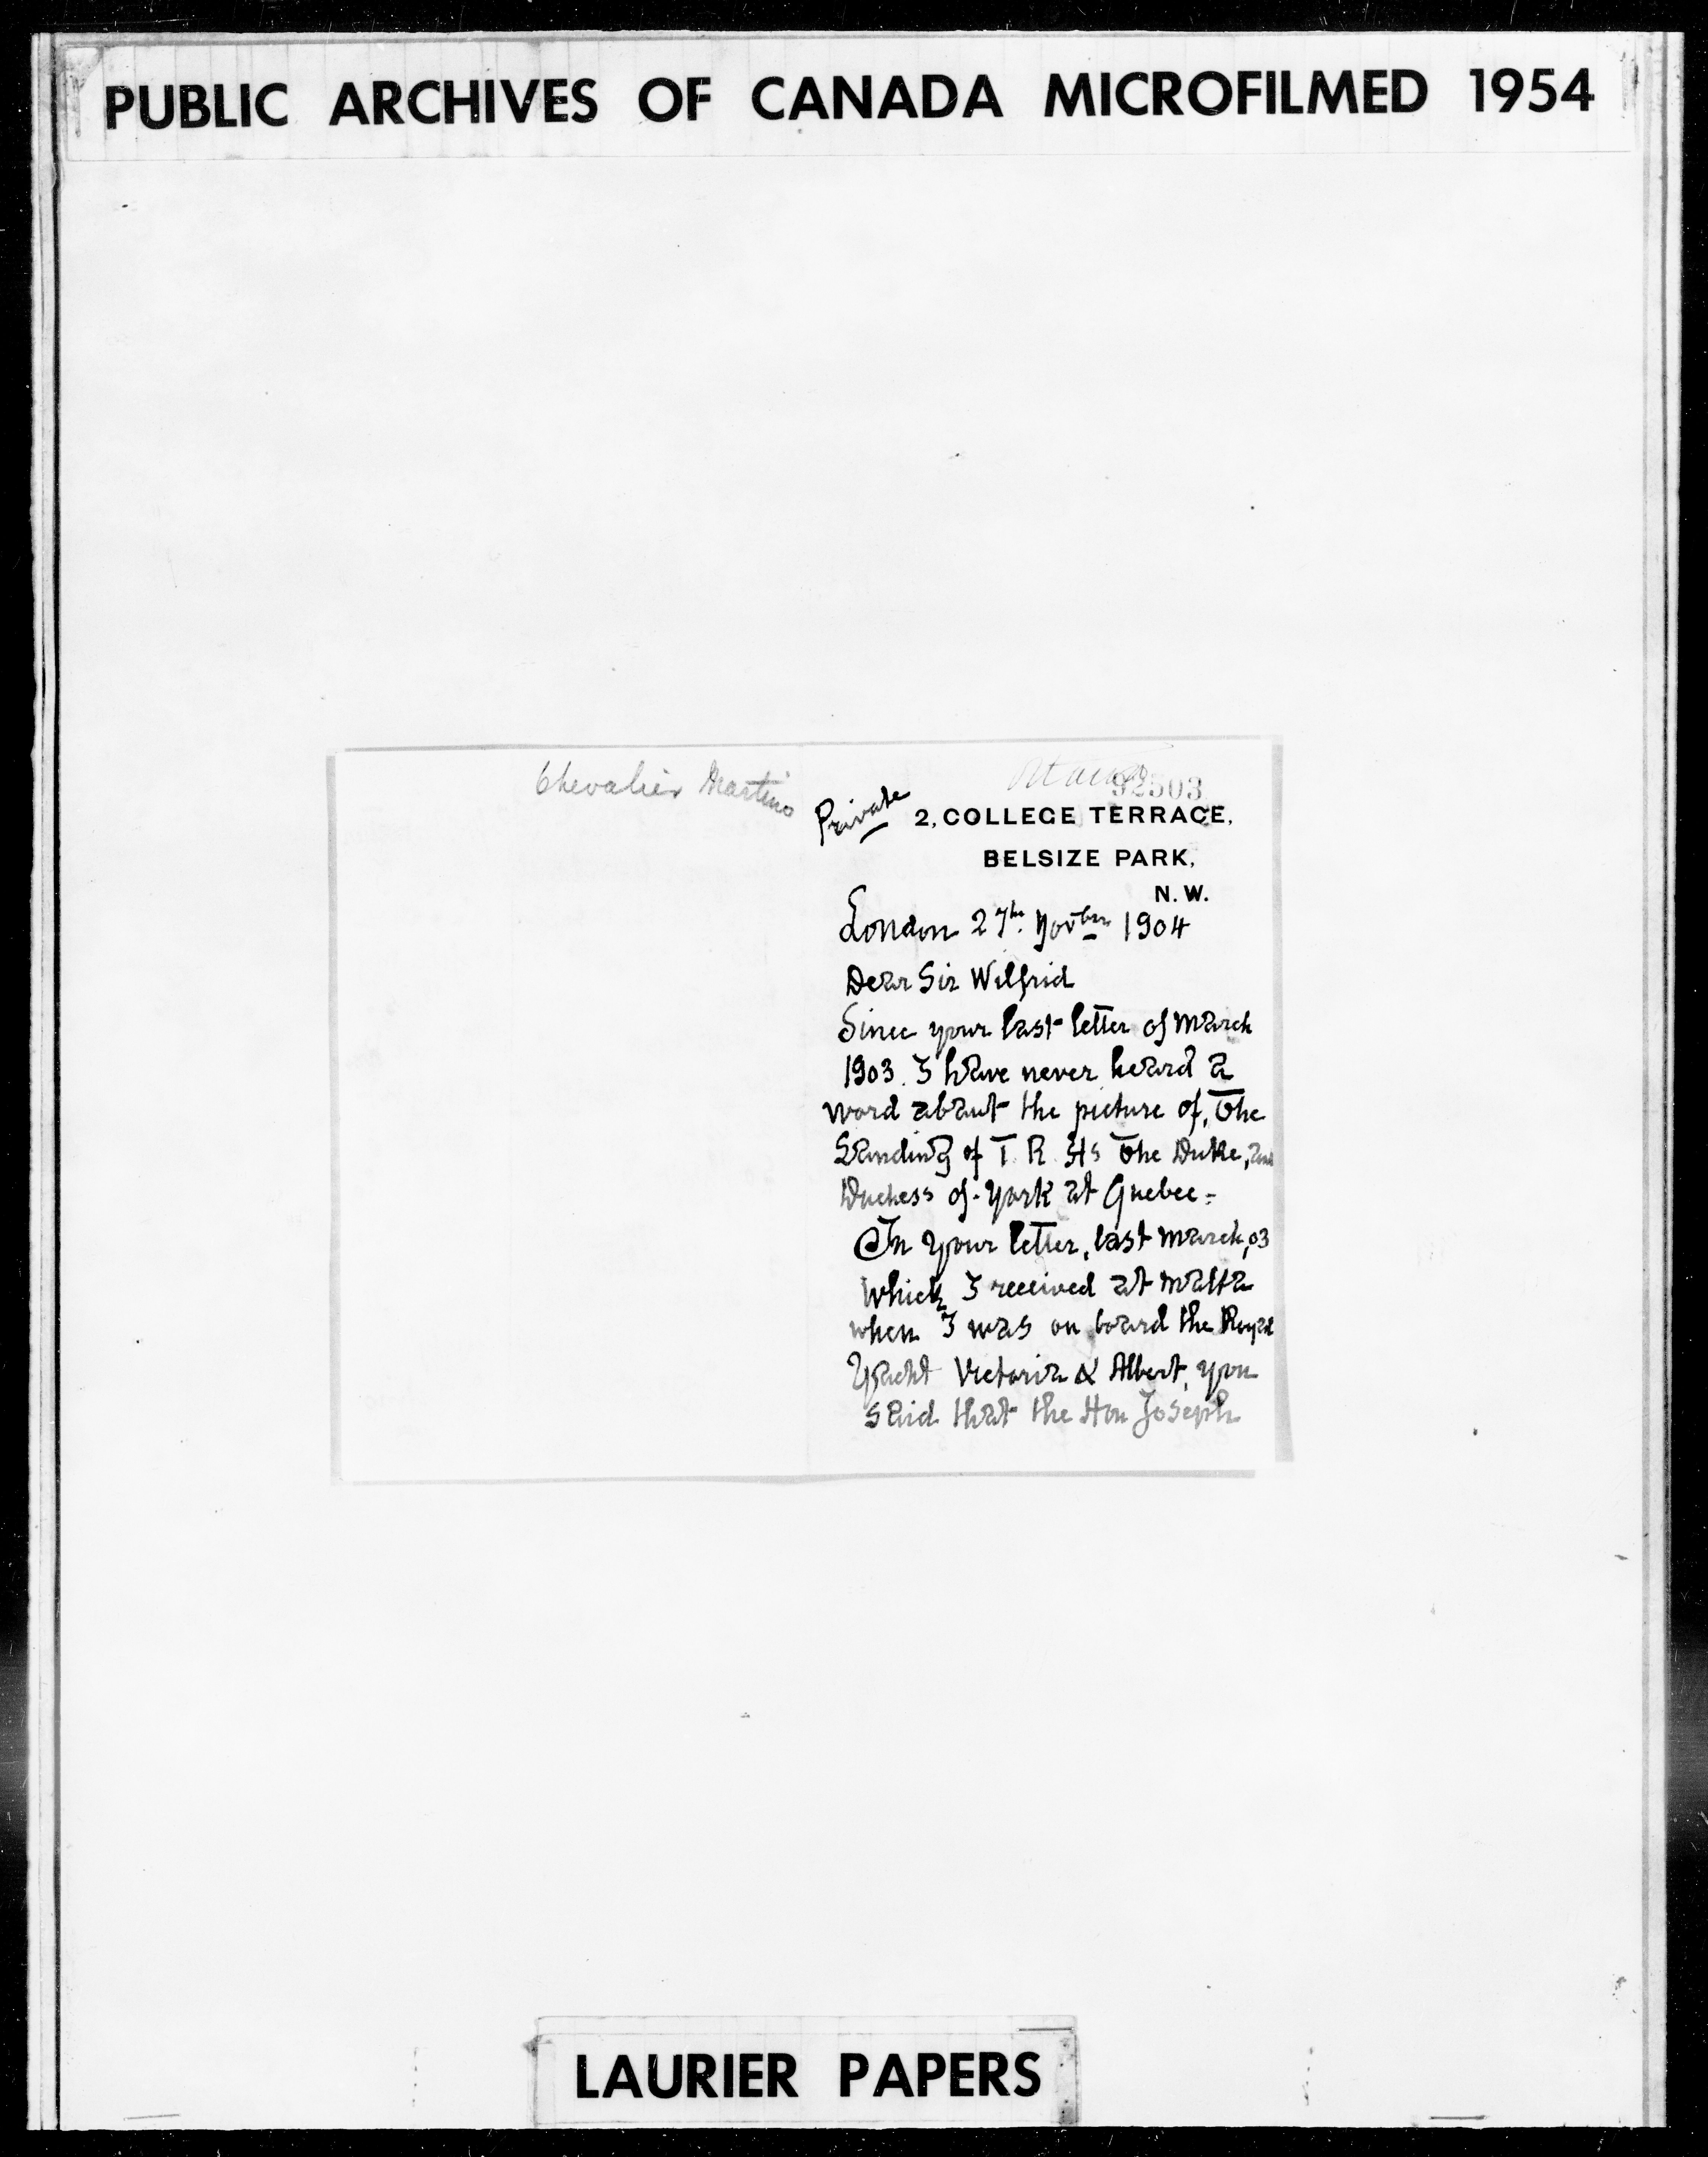 PUBLIC ARCHIVES OF CANADA MICROFILMED 1954
Chevalier Martino
92503
Private
2, COLLEGE TERRACE,
BELSIZE PARK,
N. W.
London 27th. Novbre 1904
Dear Sir Wilfrid
Since your last letter of March
1903. I have never heard a
word about the picture of, The
Landing of T. R. Hs The Duke, and
Duchess of York at Quebec =
In your letter, last March, 03
which I received at Malta
when I was on board the Royal
Yacht Victoria & Albert, you
said that the Hon Joseph
LAURIER PAPERS